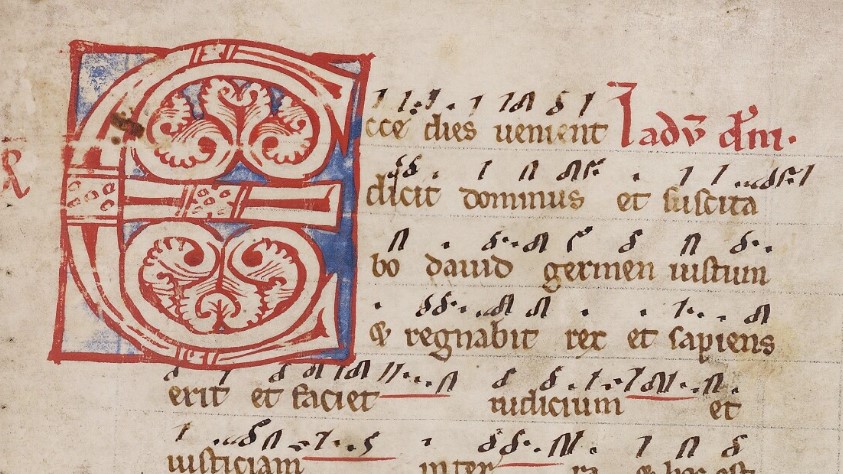 R
Ecce dies venient I adv̄ dn̄i.
dicit dominus et suscita
bo dauid germen iustum
& regnabit rex et sapiens
erit et faciet iudicium et
iusticiam in ter